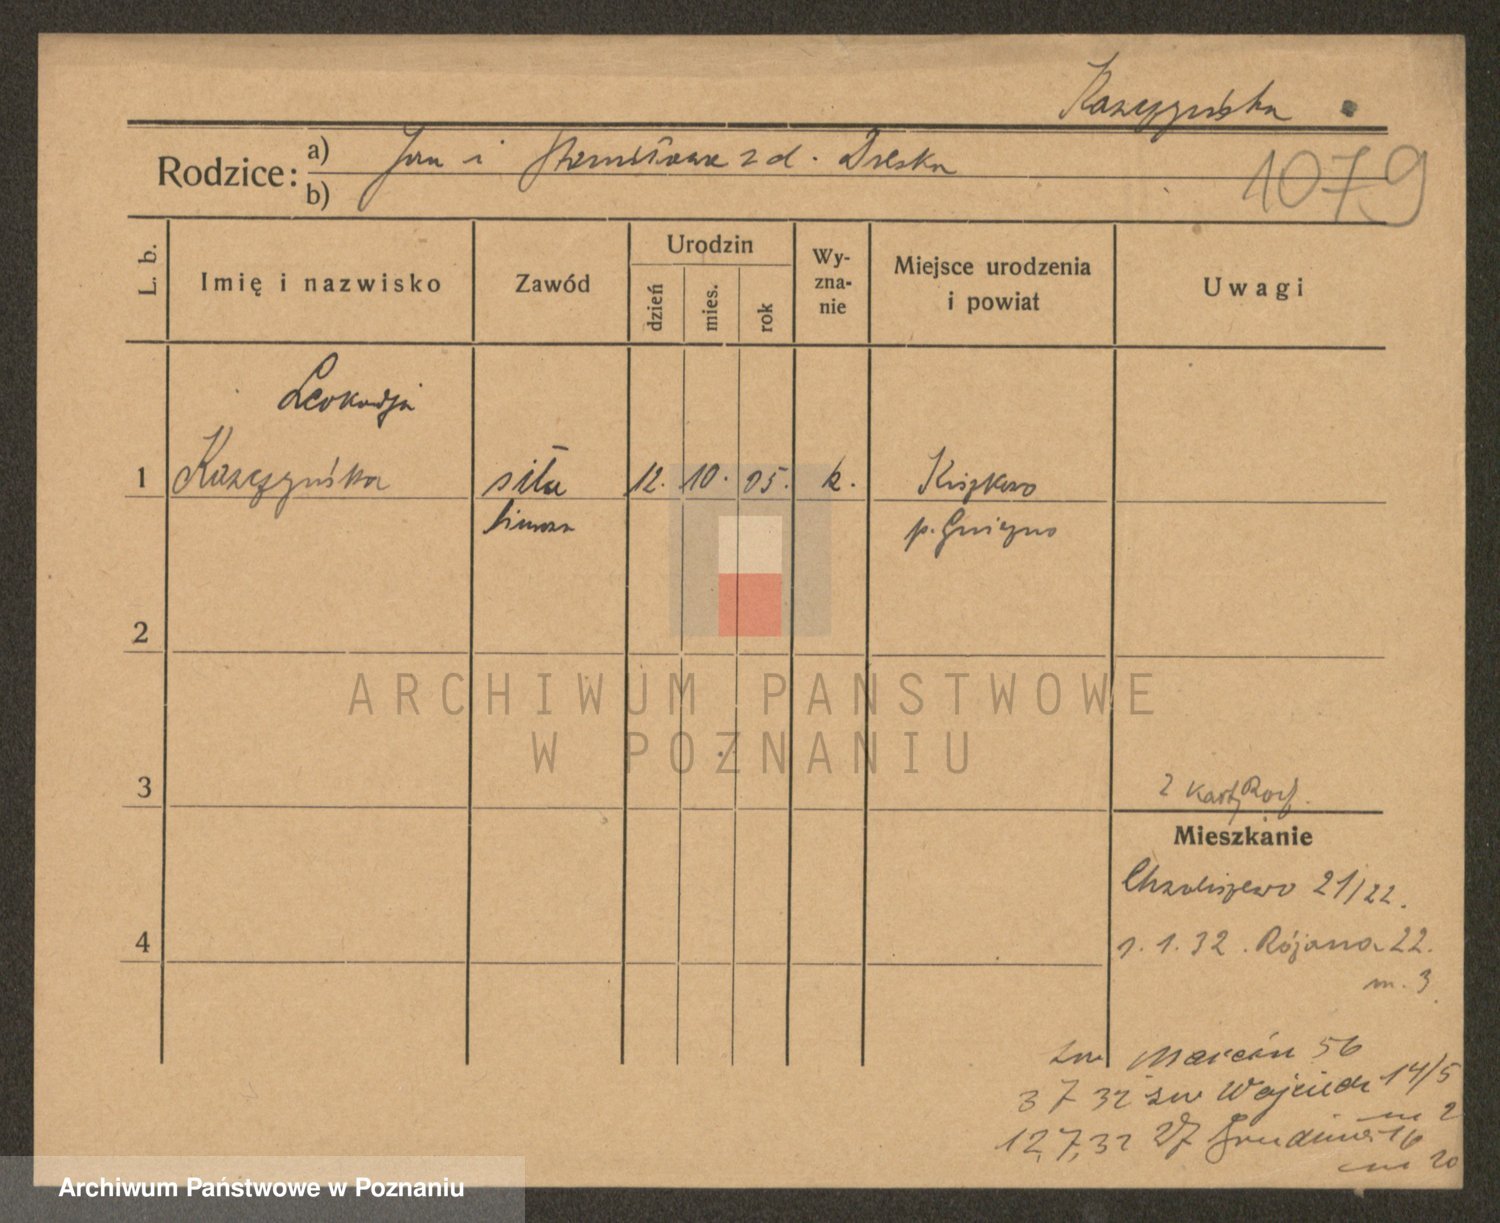 Kaszyńska
Rodzice: a) Jan i Stanisława z d. Dreska
b)
1079
L. b.
Imię i nazwisko
Zawód
Urodzin
dzień
mies.
rok
Wy-
zna-
nie
Miejsce urodzenia
i powiat
Uwagi
Leokadja
1 siła 12. 10. 05. k. Kiszkowo
biurow p. Gniezno
2
ARCHIWUM PAŃSTWOWE
W POZNANIU
3
2 karty
Mieszkanie
Chwaliszewo 21/22.
4
1. 1. 32. Różana 22.
m. 3
św Marcin 56
3 7 32 św Wojciech 14/5
m 2
12,7,32 16
m 20
Archiwum Państwowe w Poznaniu